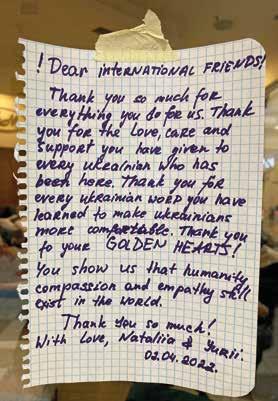 ! Dear INTERNATIONAL FRIENDS!
Thank you so much for
everything you do for us. Thank
you for the love, care and
support you have given to
every ukrainian who has
been here. Thank you for
every ukrainian word you have
learned to make ukrainians
more comfortable. Thank you
to your GOLDEN HEARTS!
You show us that humanity,
compassion and empathy still
exist in the world.
Thank you so much!
With Love, Nataliia & Yurii.
02.04.2022.